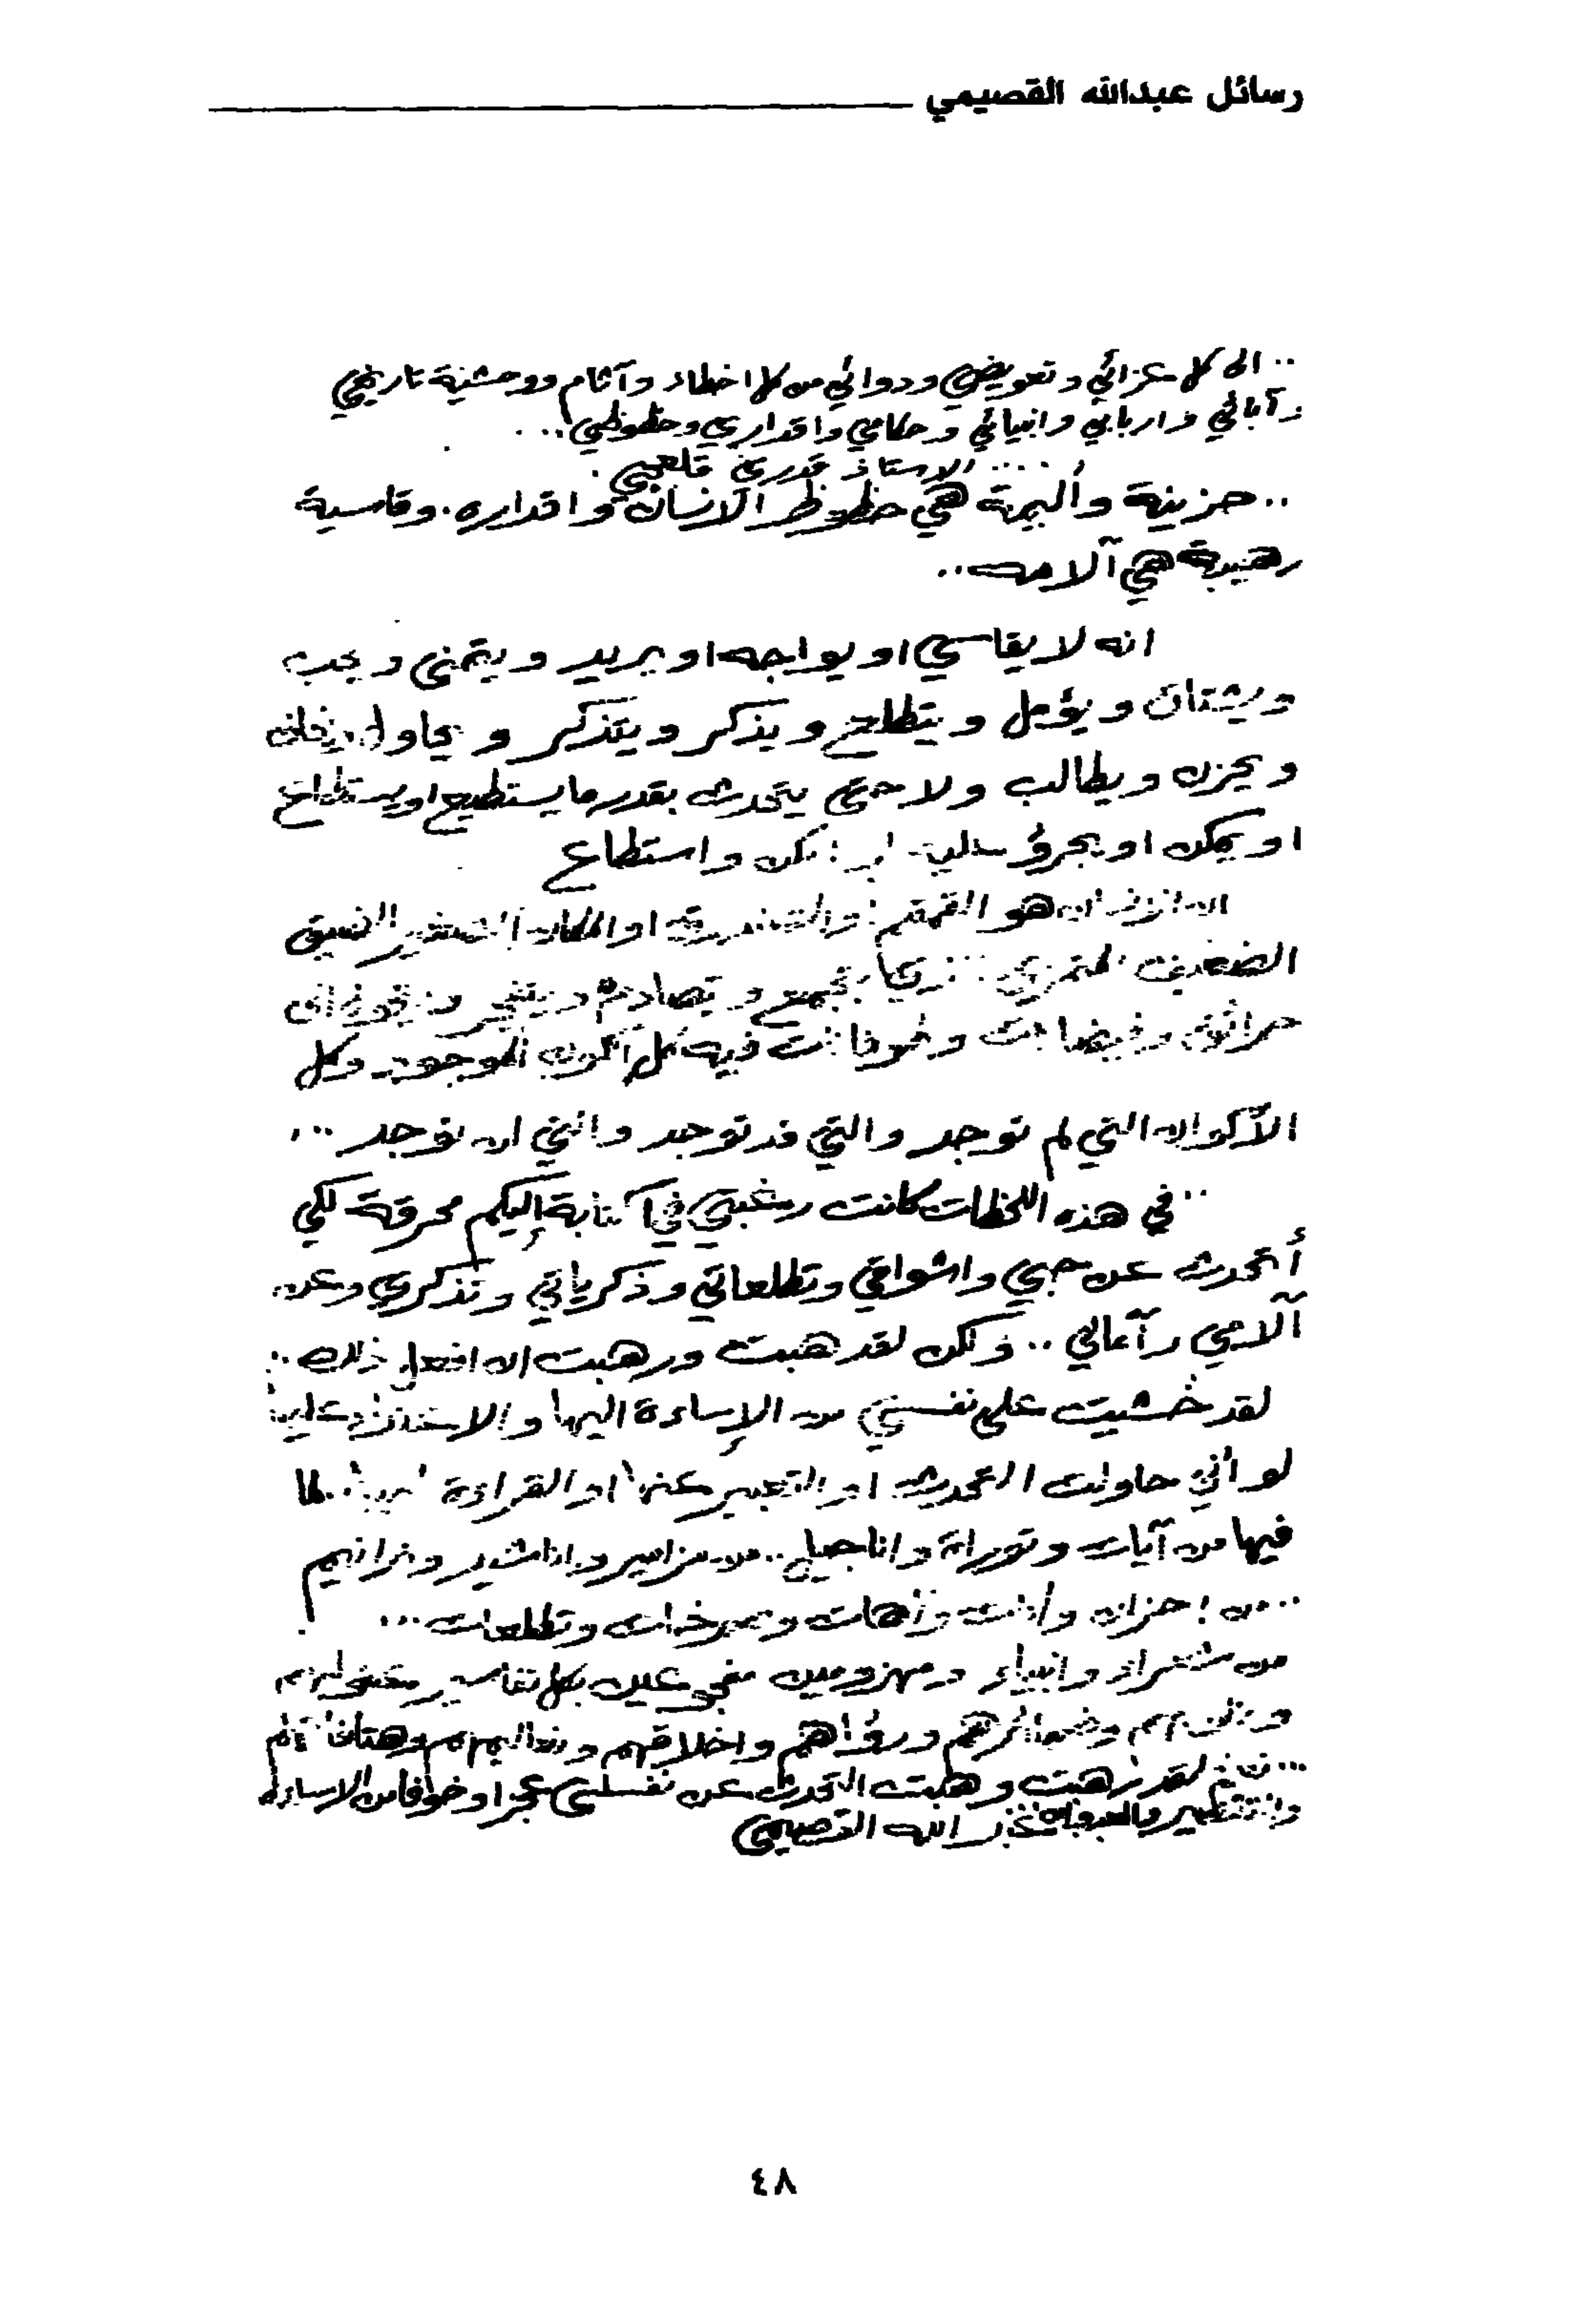 رسائل عبدالله القصيمي
.. الى كل عزائي وتعويضي ودوائي من كل اخطاء وآثام ووحشية تاريخي
وآبائي واربابي وانبيائي وحكامي واقداري وحظوظي ...
.... الاستاذ قدري قلعجي .
.. حزينة وأليمة هي حظوظ الانسان واقداره. وقاسية
رهيبة هي آلامه ..
انه لا يقاسي او يواجه او يريد ويتمنى ويحب
ويشتاق ويؤمل ويتطلع ويذكر ويتذكر ويحاول ويخاف
ويحزن ويطالب ولا حتى يتحدث بقدر ما يستطيع او يستطاع
او يمكن او يجرؤ واستطاع
هو القمقم او المكان الضيق
الضعيف
كل الكون الموجود وكل
الأكوان التي لم توجد والتي قد توجد والتي لن توجد ...
.. في هذه اللحظات كانت رغبتي في الكتابة إليكم محرقة لكي
أتحدث عن حبي واشواقي وتطلعاتي وذكرياتي وتذكري وعن
آلامي وآمالي .. ولكن لقد هبت ورهبت ان افعل ذلك ..
لقد خشيت على نفسي من الإساءة اليها و
لو أني حاولت التحدث او التعبير عنها او القراءة لما
فيها من آيات وتوراة واناجيل .. من مزامير واناشيد وترانيم
... من احزان وأنات وآهات وصرخات وتطلعات ...
من شعراء وانبياء ومهزومين مفجوعين بكل تفاسير
وضمائرهم ورؤاهم واخلاقهم وتعاليمهم
... نعم لقد رهبت وهبت التحدث عن نفسي عجزا وخوفا من الاساءة
عبد الله القصيمي
٤٨